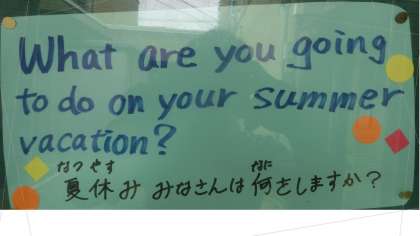 What are you going
to do on your summer
vacation?
なつやす なに
夏休み みなさんは 何をしますか?